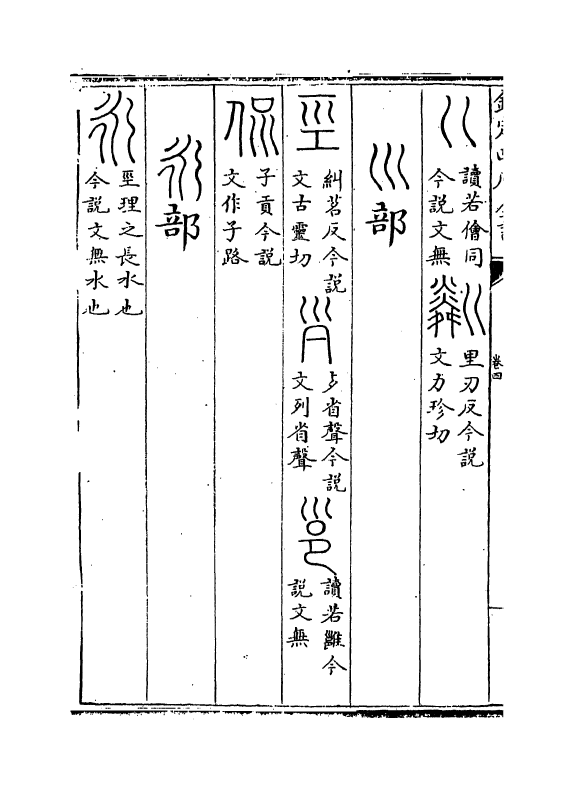 欽定四庫全書
卷四
巜 讀若儈同今説文無 粼 里刃反今説文力珍切
川部
巠 糾茗反今説文古靈切 𡿪 歺省聲今説文列省聲 邕 讀若雝今説文無
侃 子貢今説文作子路
永部
永 巠理之長水也今説文無水也